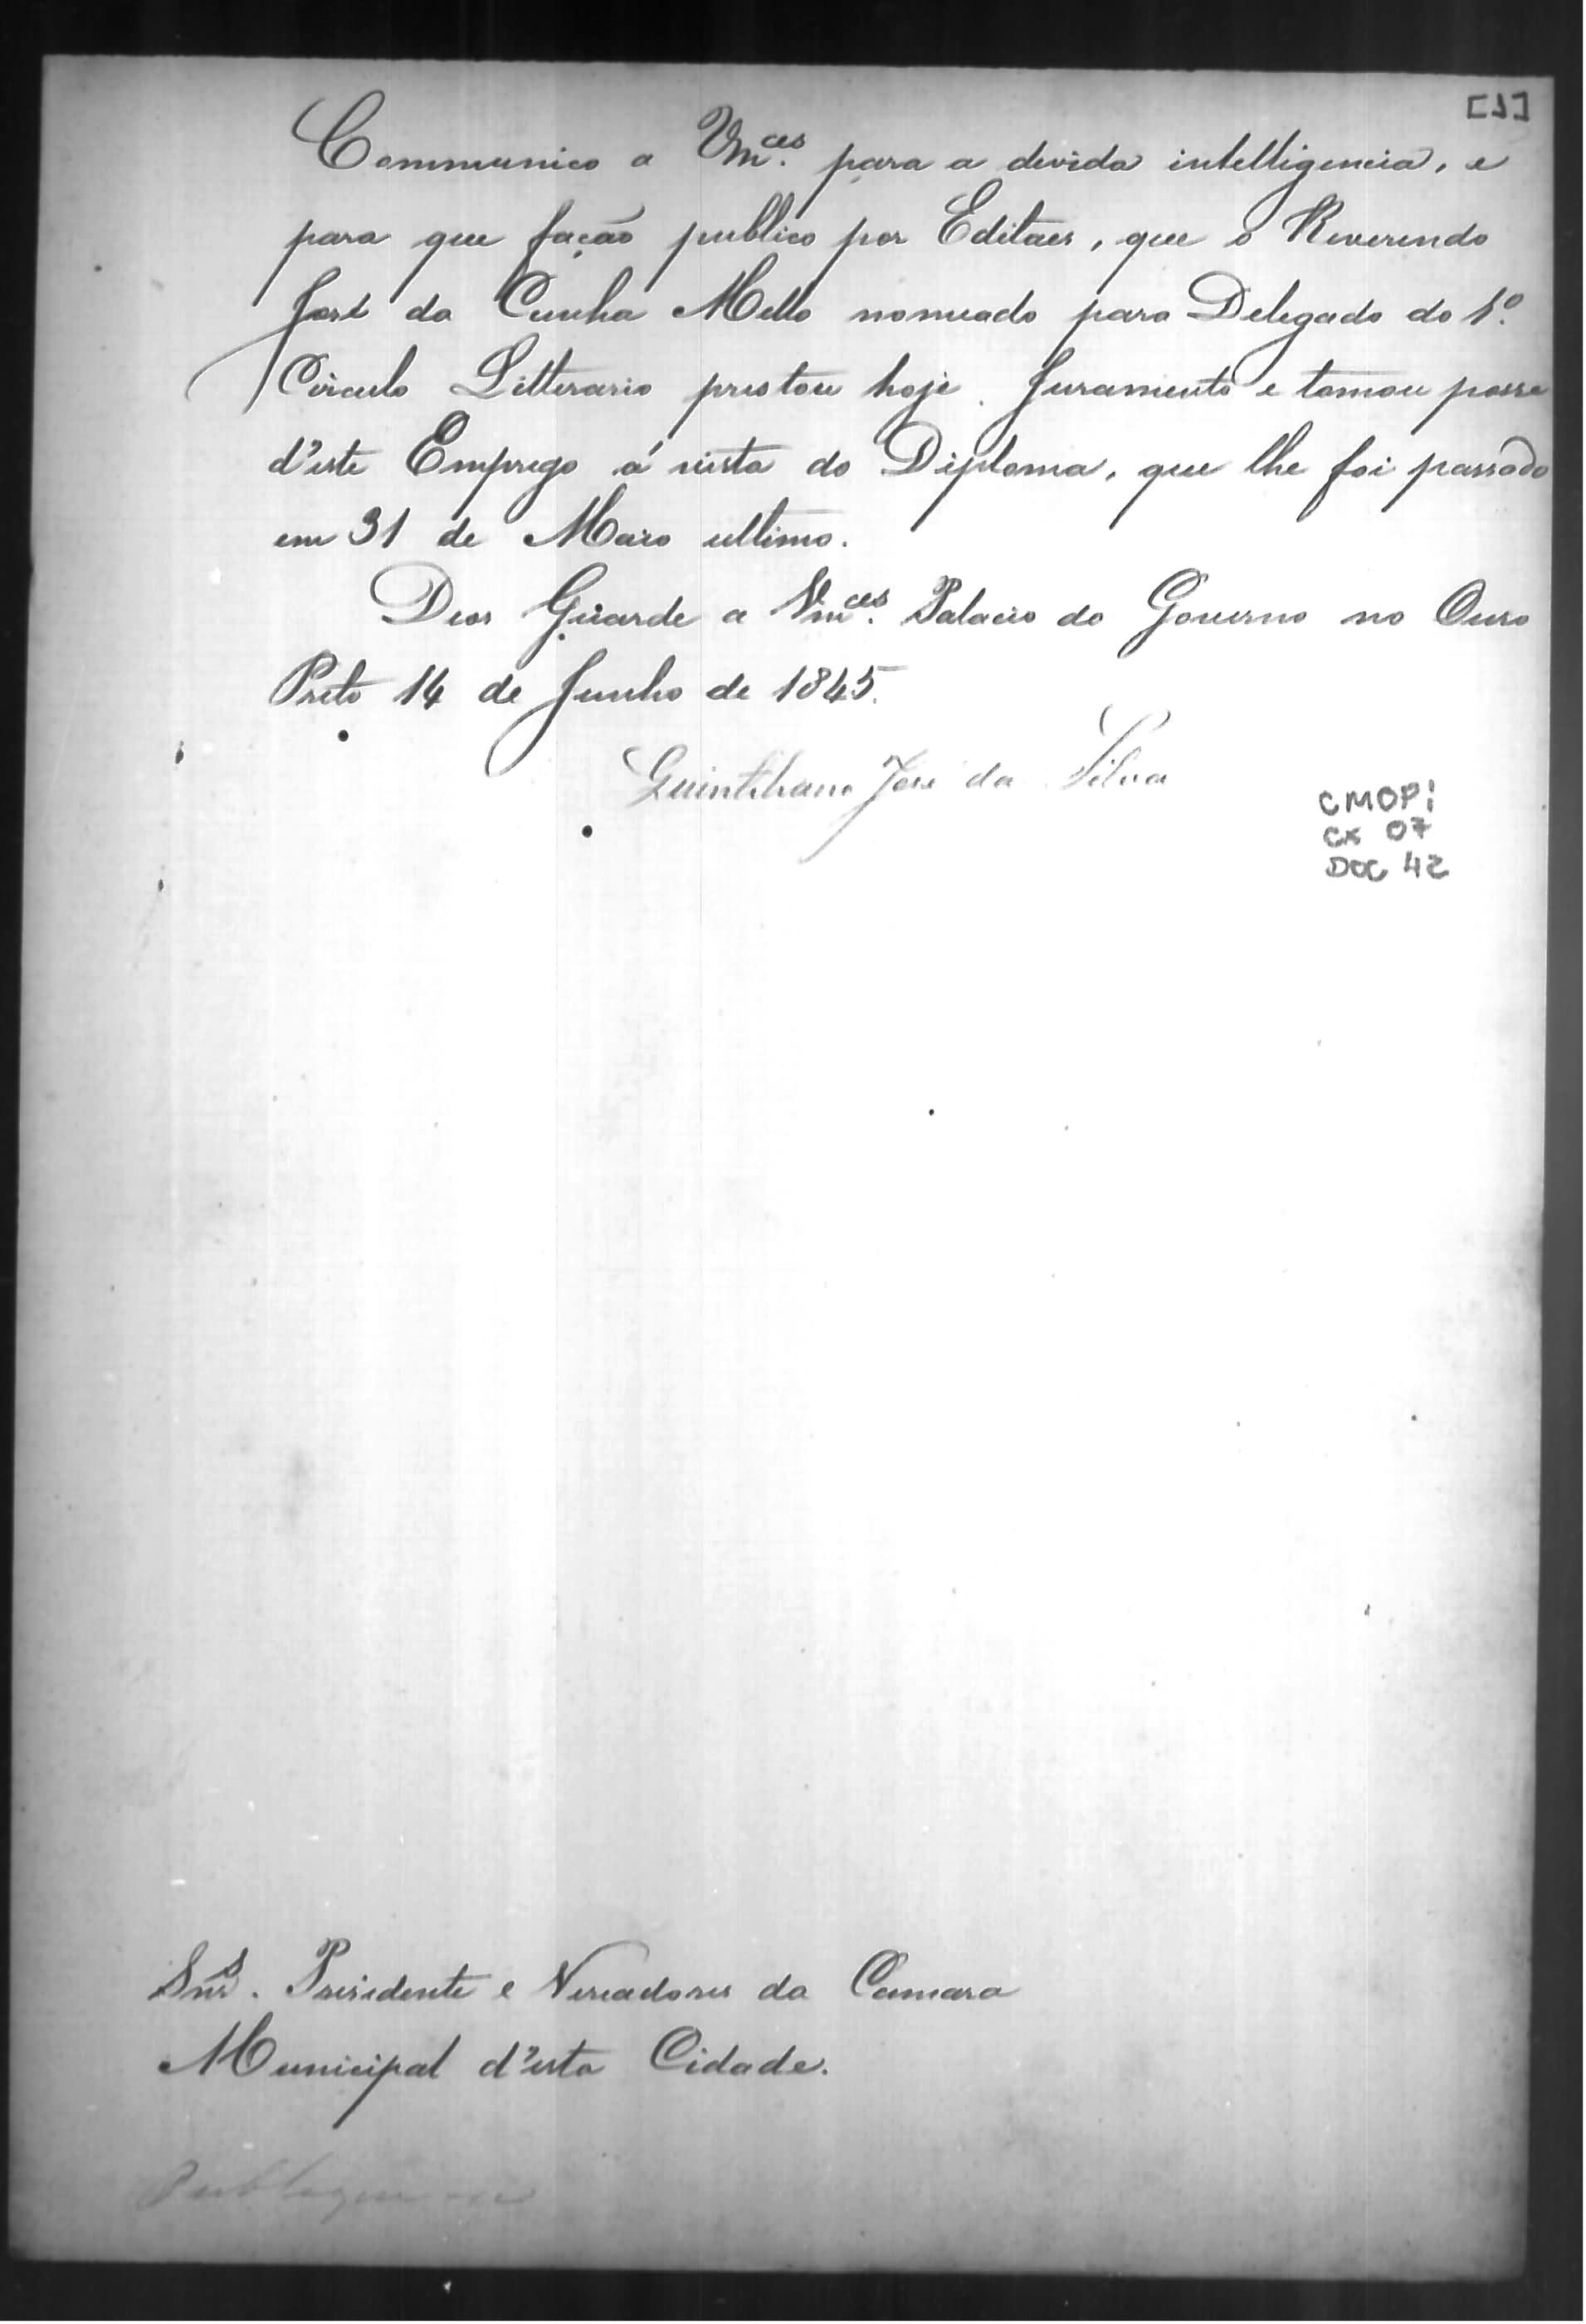 [1]
Communico a Vm.ces para a devida intelligencia, e
para que fação publico por Editaes, que o Reverendo
José da Cunha Mello nomeado para Delegado do 1º
Circulo Litterario prestou hoje Juramento e tomou posse
d'este Emprego á vista do Diploma, que lhe foi passado
em 31 de Maio ultimo.
Deos Guarde a Vm.ces Palacio do Governo no Ouro
Preto 14 de Junho de 1845.
Quintiliano José da Silva
CMOPi
CX 07
DOC 42
Snrs. Presidente e Vereadores da Camara
Municipal d'esta Cidade.
Publique-se